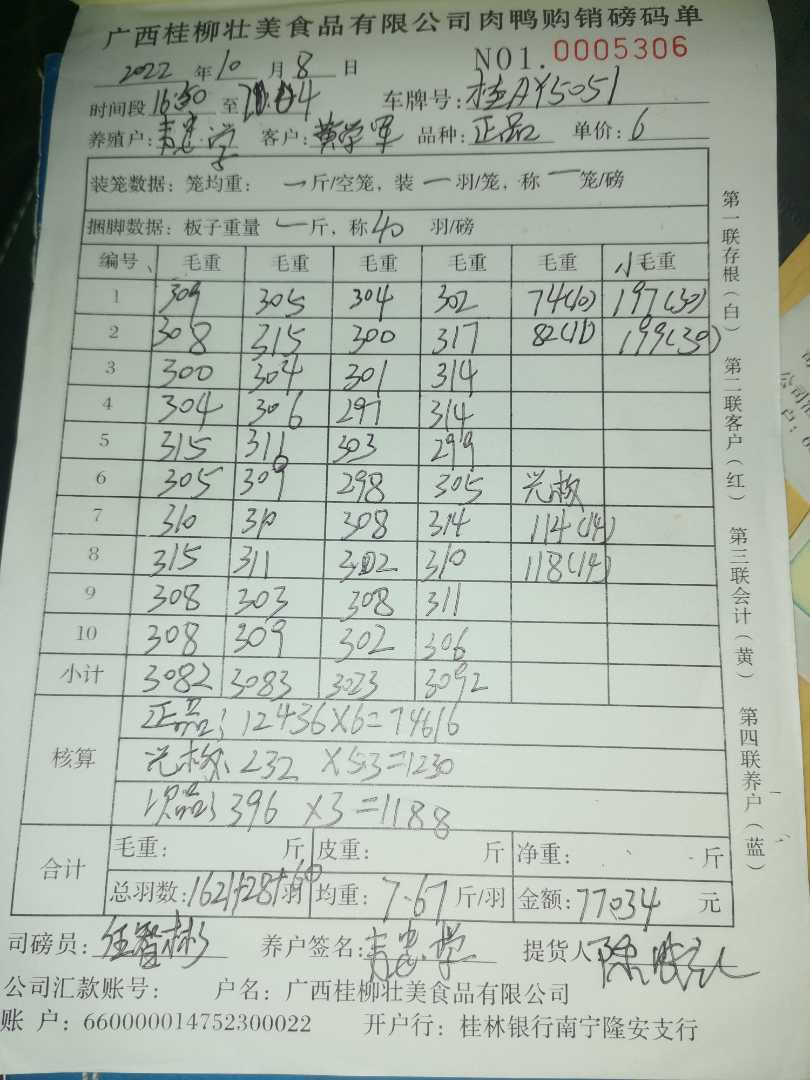 广西桂柳壮美食品有限公司肉鸭购销磅码单
NO1.0005306
2022 年 10 月 8 日
时间段 16:30 至 车牌号: 桂AY5051
养殖户: 韦忠学 客户: 黄学军 品种: 正品 单价: 6
装笼数据: 笼均重: 一 斤/空笼, 装 一 羽/笼, 称 一 笼/磅
捆脚数据: 板子重量 一 斤, 称 40 羽/磅
编号、 毛重 毛重 毛重 毛重 毛重 小毛重
1 309 305 304 302 74(10) 197(30)
2 308 315 300 317 82(11) 199(30)
3 300 304 301 314
4 304 306 297 314
5 315 311 303 299
6 305 309 298 305 光板
7 310 310 308 314 114(14)
8 315 311 302 310 118(14)
9 308 303 308 311
10 308 309 302 306
小计 3082 3083 3023 3092
核算
正品: 12436×6=74616
光板: 232 ×5.3=1230
次品: 396 ×3=1188
合计
毛重: 斤 皮重: 斤 净重: 斤
总羽数: 1621+28+60 羽 均重: 7.67 斤/羽 金额: 77034 元
司磅员: 任智彬 养户签名: 韦忠学 提货人
公司汇款账号: 户名: 广西桂柳壮美食品有限公司
账 户: 660000014752300022 开户行: 桂林银行南宁隆安支行
第一联存根(白) 第二联客户(红) 第三联会计(黄) 第四联养户(蓝)